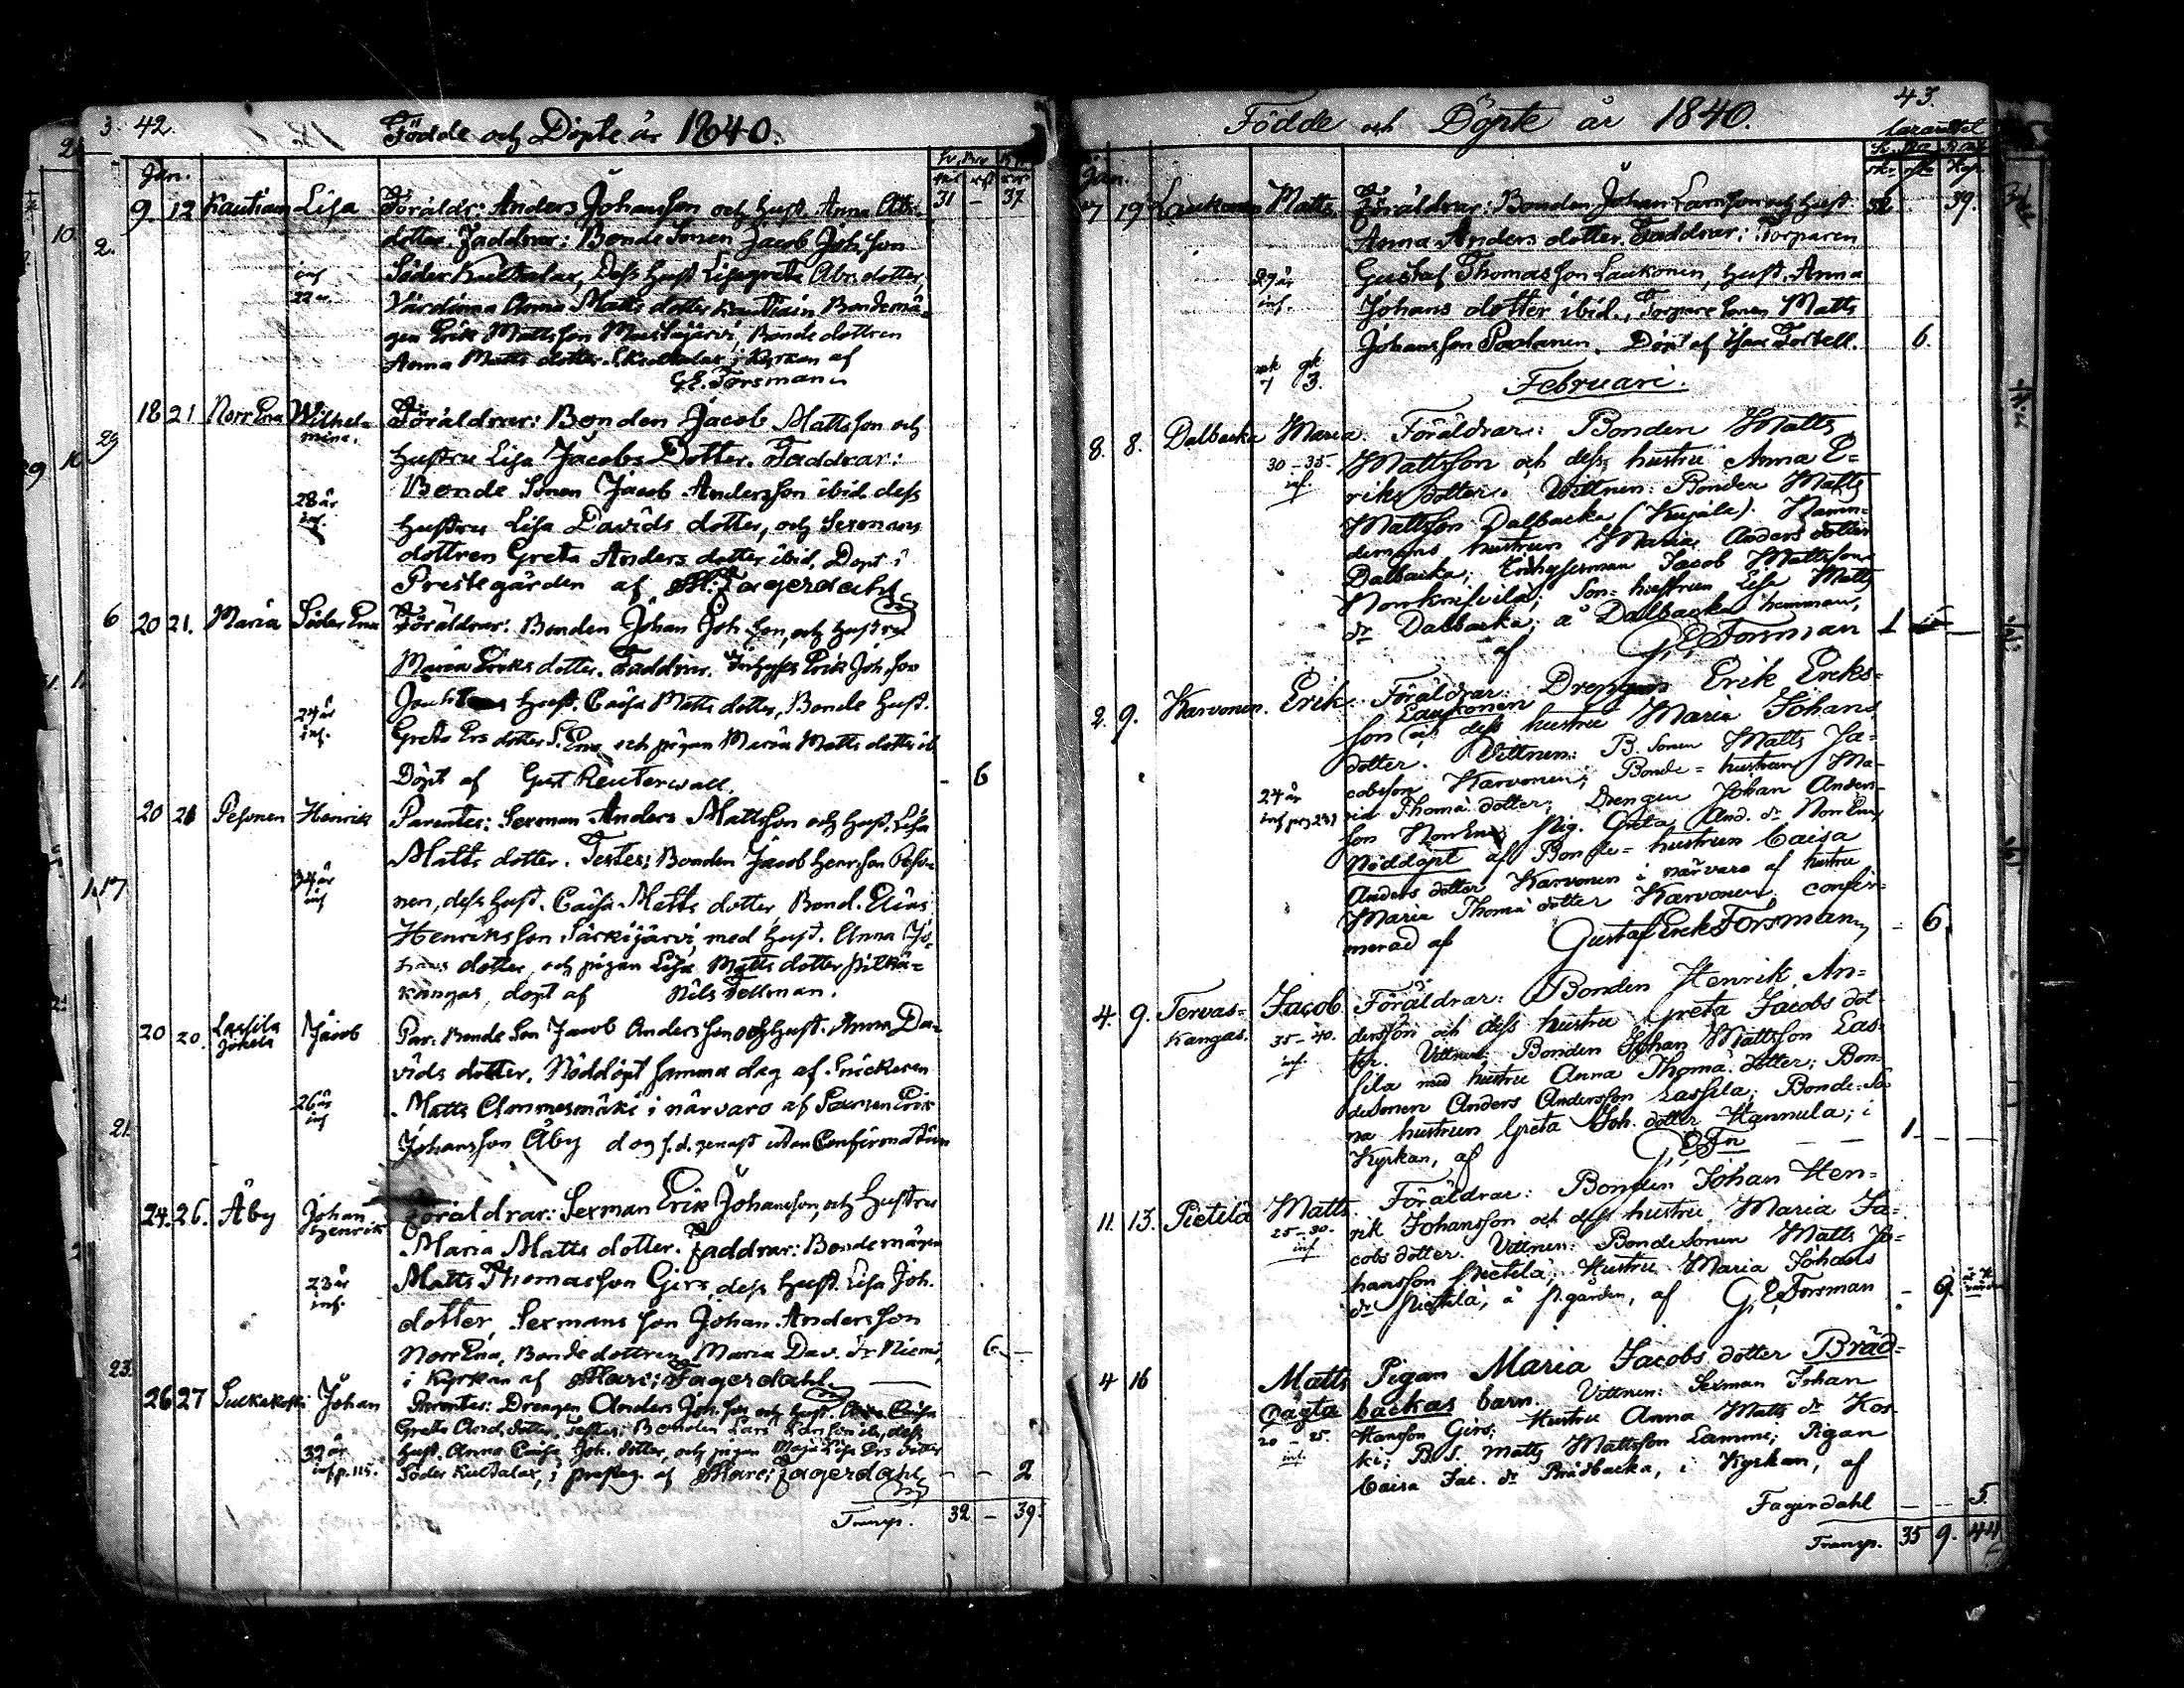 42.
Födde och Döpte år 1840.
Jan.
9. 12 Kautiain Lisa Föräldr: Anders Johansson och Hust. Anna Abr. 31 – 37
dotter. Faddrar: Bonde Sonen Jacob Joh.son
Söder Kultalax, Dess Hust Lisagreta Abr. dotter,
inf 22 år
Värdinna Anna Matts dotter Kautiain Bondemå-
gen Erik Mattsson Mustajärvi, Bonde dottren
Anna Matts dotter S. Kultalax i Kyrkan af
G.E. Forsman
18 21 Norr Ena Wilhel-mina. Föräldrar: Bonden Jacob Mattsson och
Hustru Lisa Jacobs Dotter. Faddrar:
28 år inf.
Bonde Sonen Jacob Andersson ibid. dess
Hustru Lisa Davids dotter, och Sexmans
dottren Greta Anders dotter ibid. Döpt i
Prestegården af Fagerdahl
6 20 21. Maria Söder Ena Föräldrar: Bonden Johan Joh.son, och Hustru
Maria Eriks dotter. Faddrar. Erik Joh.son
24 år inf.
Hust. Caisa Matts dotter, Bonde Hust.
Greta Ers dotter S. Ena och pigan Maria Matts dotter ib
Döpt af Gust Reuterwall. – 6
20 21 Pesonen Henrik Parentes: Sexman Anders Mattsson och Hust. Lisa
Matts dotter. Testes: Bonden Jacob Henrsson Peso-
34 år inf
nen, dess Hust. Caisa Matts dotter, Bond. Elias
Henriksson Särkijärvi, med Hust. Anna Jo-
hans dotter, och pigan Lisa Matts dotter Pitkä-
kangas, döpt af Nils Fellman.
20 20. Lassila Jokela Jacob Par: Bonde Son Jacob Andersson och Hust. Anna Da-
vids dotter. Nöddöpt samma dag af Snickaren
26 år inf
Matts Ammesmäki i närvaro af Sexman Erik
Johansson Åby dog s.d. genast utan Confirmation
24. 26. Åby Johan Henrik Föräldrar: Sexman Erik Johansson, och Hustru
Maria Matts dotter. Faddrar: Bondemågen
23 år inf.
Matts Thomasson Girs, dess Hust. Lisa Joh.
dotter, Sexmans son Johan Andersson
Norr Ena, Bonde dottren Maria Dav. dr Niemi, 6 –
i Kyrkan af Marc: Fagerdahl
26 27 Johan Parentes: Drengen Anders Joh.son och Hust. Caisa
Greta And. dotter. Testes: Bonden Lars dess
39 år inf p. 115.
Hust. Anna Caisa Joh. dotter, och pigan Maja Lisa Ers dotter
Söder Kultalax, i prestg. af Marc: Fagerdahl – – 2
Transp. 32 – 39.
43.
Födde och Döpte år 1840.
Lazarettet
Jan.
7 19 Laukonen Matts. Föräldrar: Bonden Johan Larsson och Hust. 32 39.
Anna Anders dotter. Faddrar: Torparen
29 år inf.
Gustaf Thomasson Laukonen, Hust. Anna
Johans dotter ibid., Torpare Sonen Matts
Johansson Pastanen. Döpt af Isac Forsell. 6.
mk 7 qk 3.
Februari.
8. 8. Dalbacka Maria. Föräldrar: Bonden Matts
30–35. inf.
Mattsson och dess hustru Anna E-
riks dotter. Vittnen: Bonden Matts
Mattsson Dalbacka (Kujala). Nämn-
demans hustrun Maria Anders dotter
Dalbacka; Jacob Mattsson
Norrknifvila; Son-hustrun Lisa Matts
dr Dalbacka; å Dalbacka hemman,
af G.E. Forsman 1 –
2. 9. Karvonen. Erik. Föräldrar: Drengen Erik Eriks-
Laukonen
son och dess hustru Maria Johans
dotter. Vittnen: B. Sonen Matts Ja-
cobsson Karvonen; Bonde-hustrun Ma-
24 år
ria Thomæ dotter; Drengen Johan Anders-
son Norr Ena; Pig. Greta And. dr Norr Ena;
Nöddöpt af Bonde-hustrun Caisa
Anders dotter Karvonen i närvaro af hustru
Maria Thomæ dotter Karvonen. confir-
merad af Gustaf Erik Forsman – 6
4. 9. Tervas-kangas. Jacob. Föräldrar: Bonden Henrik An-
35–40. inf.
dersson och dess hustru Greta Jacobs dot-
ter. Vittnen: Bonden Johan Mattsson Las-
sila med hustru Anna Thomæ dotter; Bon-
desonen Anders Andersson Lassila; Bonde-So-
na hustrun Greta Joh. dotter Hannula; i
Kyrkan, af G.E. Fn 1 – –
11. 13. Pietilä Matts. Föräldrar: Bonden Johan Hen-
25–30. inf
rik Johansson och dess hustru Maria Ja-
cobs dotter. Vittnen: Bondesonen Matts Jo-
hansson Pietilä; Hustru Maria Johans
dr Pietilä; å p.gården, af G.E. Forsman – 9.
4 16 Matts Pigan Maria Jacobs dotter Bräd-
Oägta backas barn. Vittnen: Sexman Johan
20–25. inf.
Hansson Girs; Hustru Anna Matts dr Kos-
ki; B.S. Matts Mattsson Lamme; Pigan
Caisa Jac. dr Brädbacka, i Kyrkan, af
Fagerdahl – – 5.
Transp. 35 9. 44